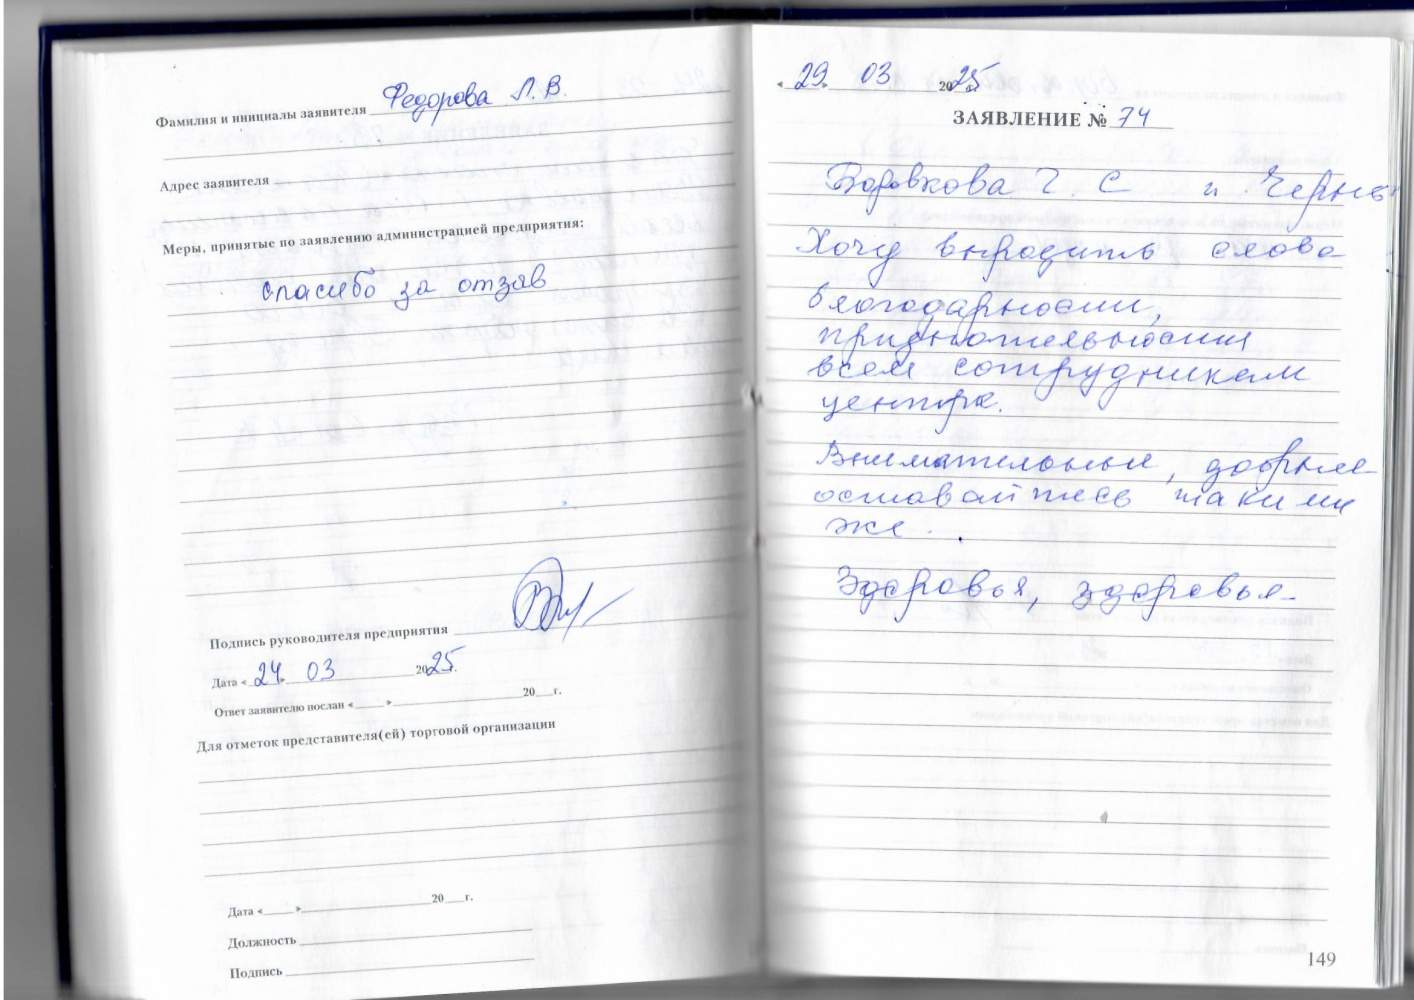 Фамилия и инициалы заявителя Федорова Л. В.
Адрес заявителя
Меры, принятые по заявлению администрацией предприятия:
спасибо за отзыв
Подпись руководителя предприятия
Дата « 24 » 03 2025 г.
Ответ заявителю послан « » 20 г.
Для отметок представителя(ей) торговой организации
Дата « » 20 г.
Должность
Подпись
« 29 » 03 2025 г.
ЗАЯВЛЕНИЕ № 74
Боровкова Г. С и
Хочу выразить слова
благодарности,
признательности
всем сотрудникам
центра.
Внимательные, добрые
оставайтесь такими
же.
Здоровья, здоровья.
149